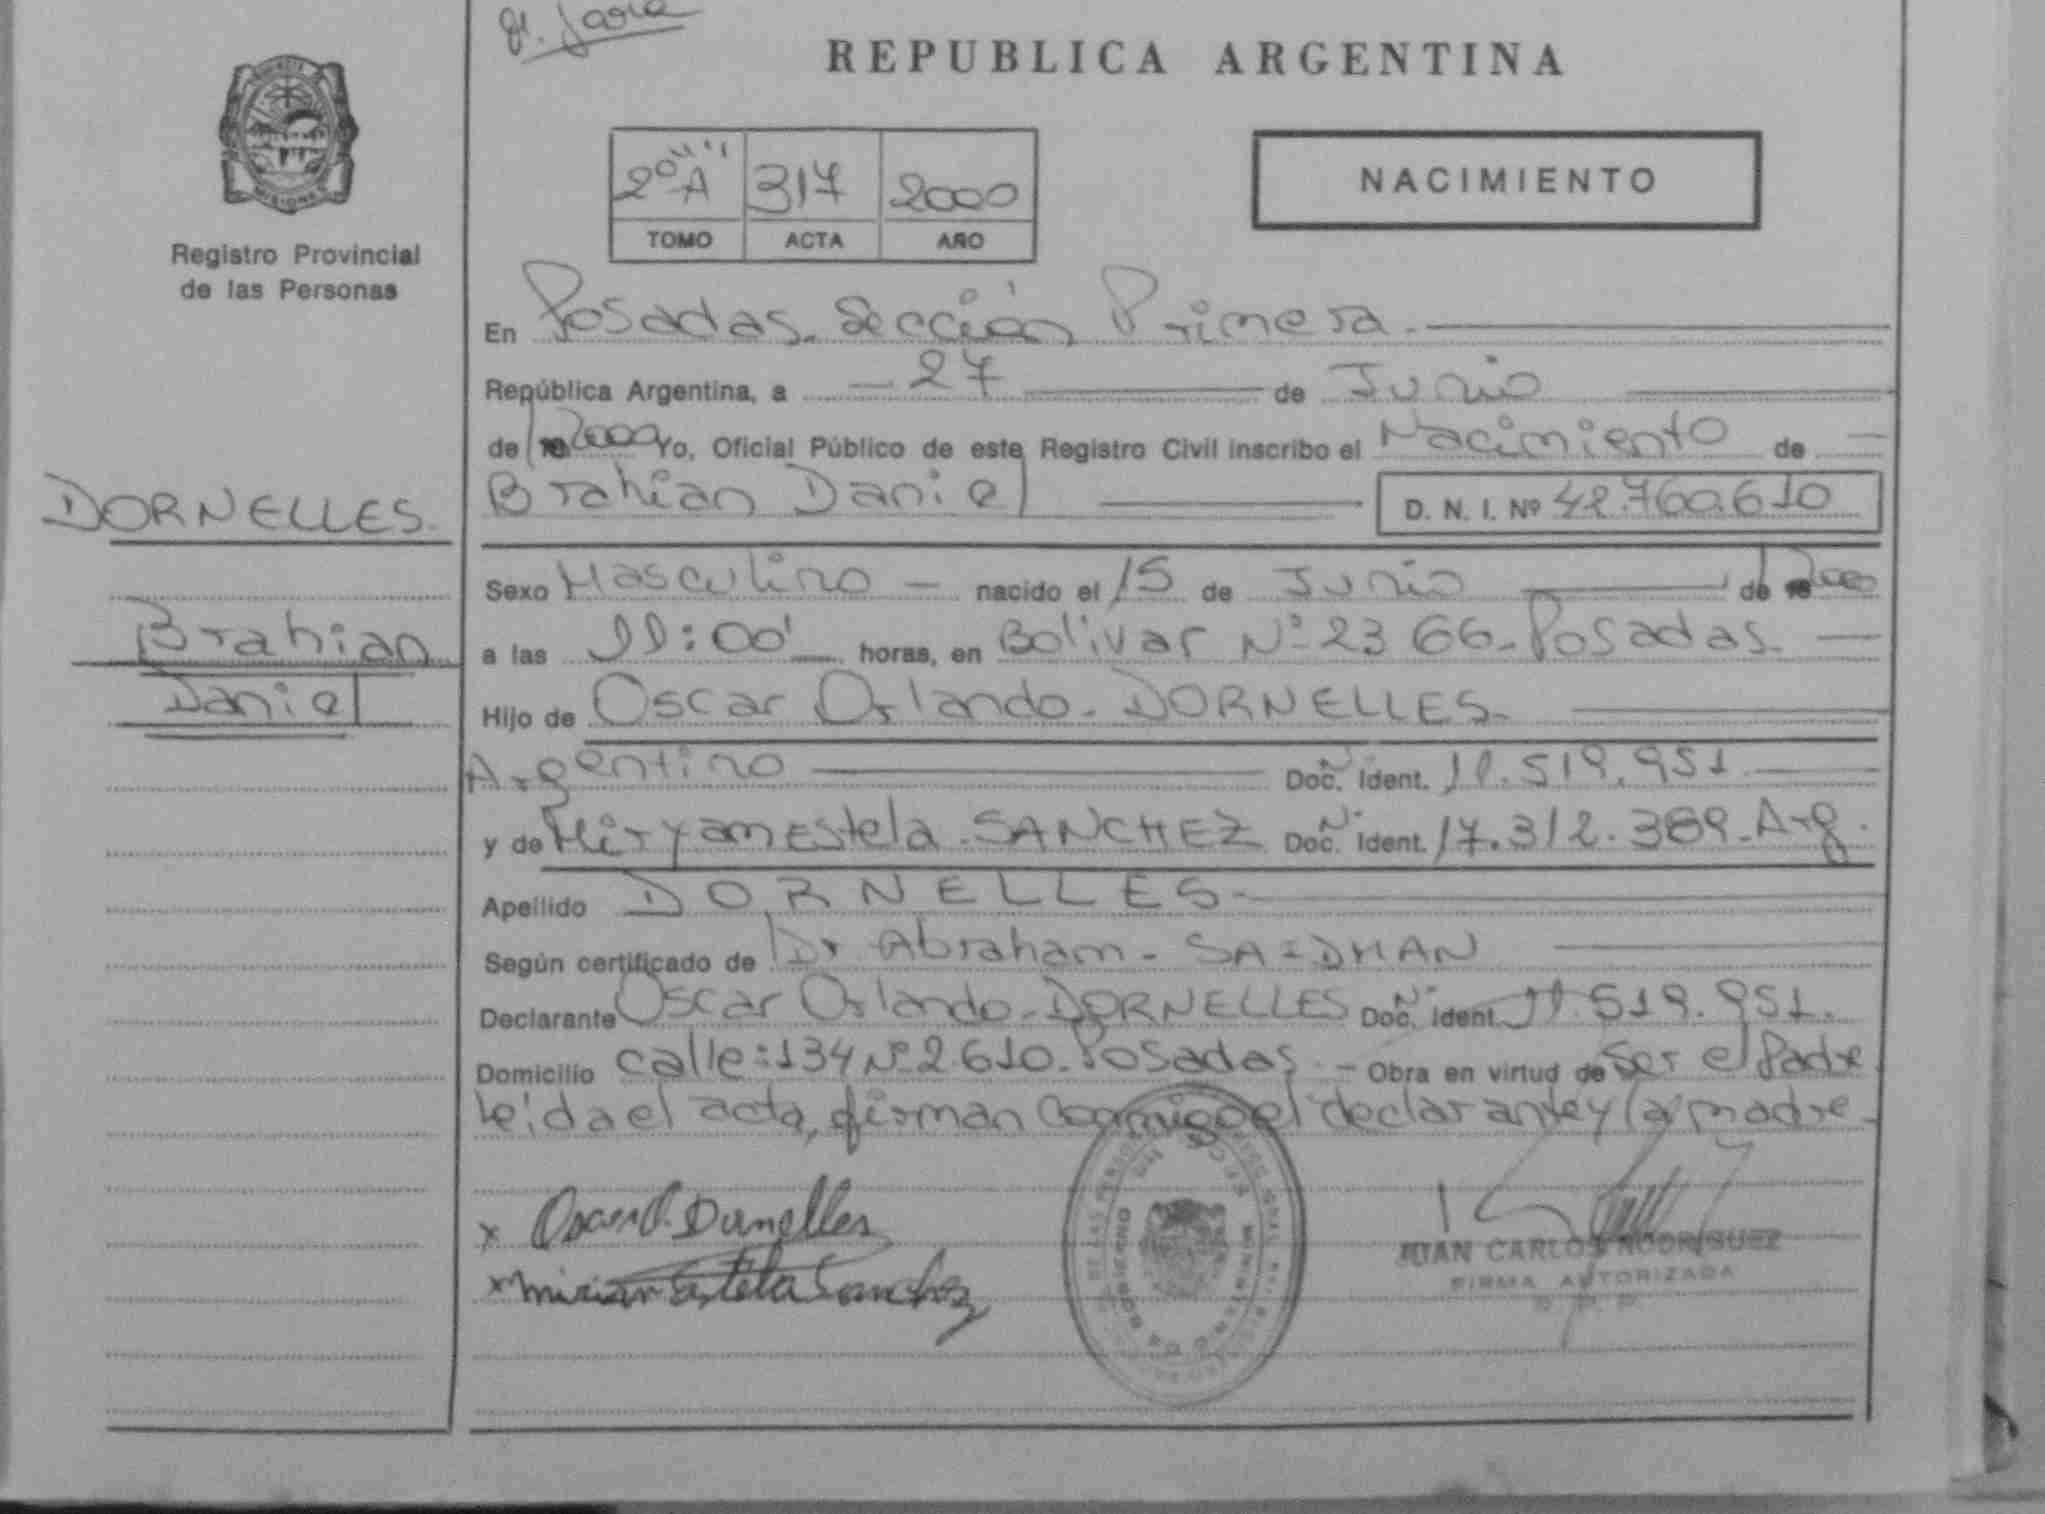 REPUBLICA ARGENTINA
Registro Provincial
de las Personas
2º "A" 317 2000
TOMO ACTA AÑO
NACIMIENTO
En Posadas. Sección Primera.
República Argentina, a 27 de Junio
de 2000 Yo, Oficial Público de este Registro Civil inscribo el Nacimiento de
Brahian Daniel D. N. I. Nº 42.760.610
DORNELLES.
Brahian
Daniel
Sexo Masculino nacido el 15 de Junio de 2000
a las 11:00' horas, en Bolivar Nº 2366. Posadas.
Hijo de Oscar Orlando. DORNELLES.
Argentino Doc. Ident. 11.519.951
y de Miryam Estela. SANCHEZ Doc. Ident. 17.312.389. Arg.
Apellido DORNELLES.
Según certificado de Dr. Abraham. SAIDMAN
Declarante Oscar Orlando. DORNELLES Doc. Ident. 11.519.951.
Domicilio calle: 134 Nº 2.610. Posadas. Obra en virtud de Ser el Padre.
Leída el acta, firman conmigo el declarante y la madre.
x Oscar O. Dornelles
x Mirian Estela Sanchez
JUAN CARLOS RODRIGUEZ
FIRMA AUTORIZADA
R. P. P.